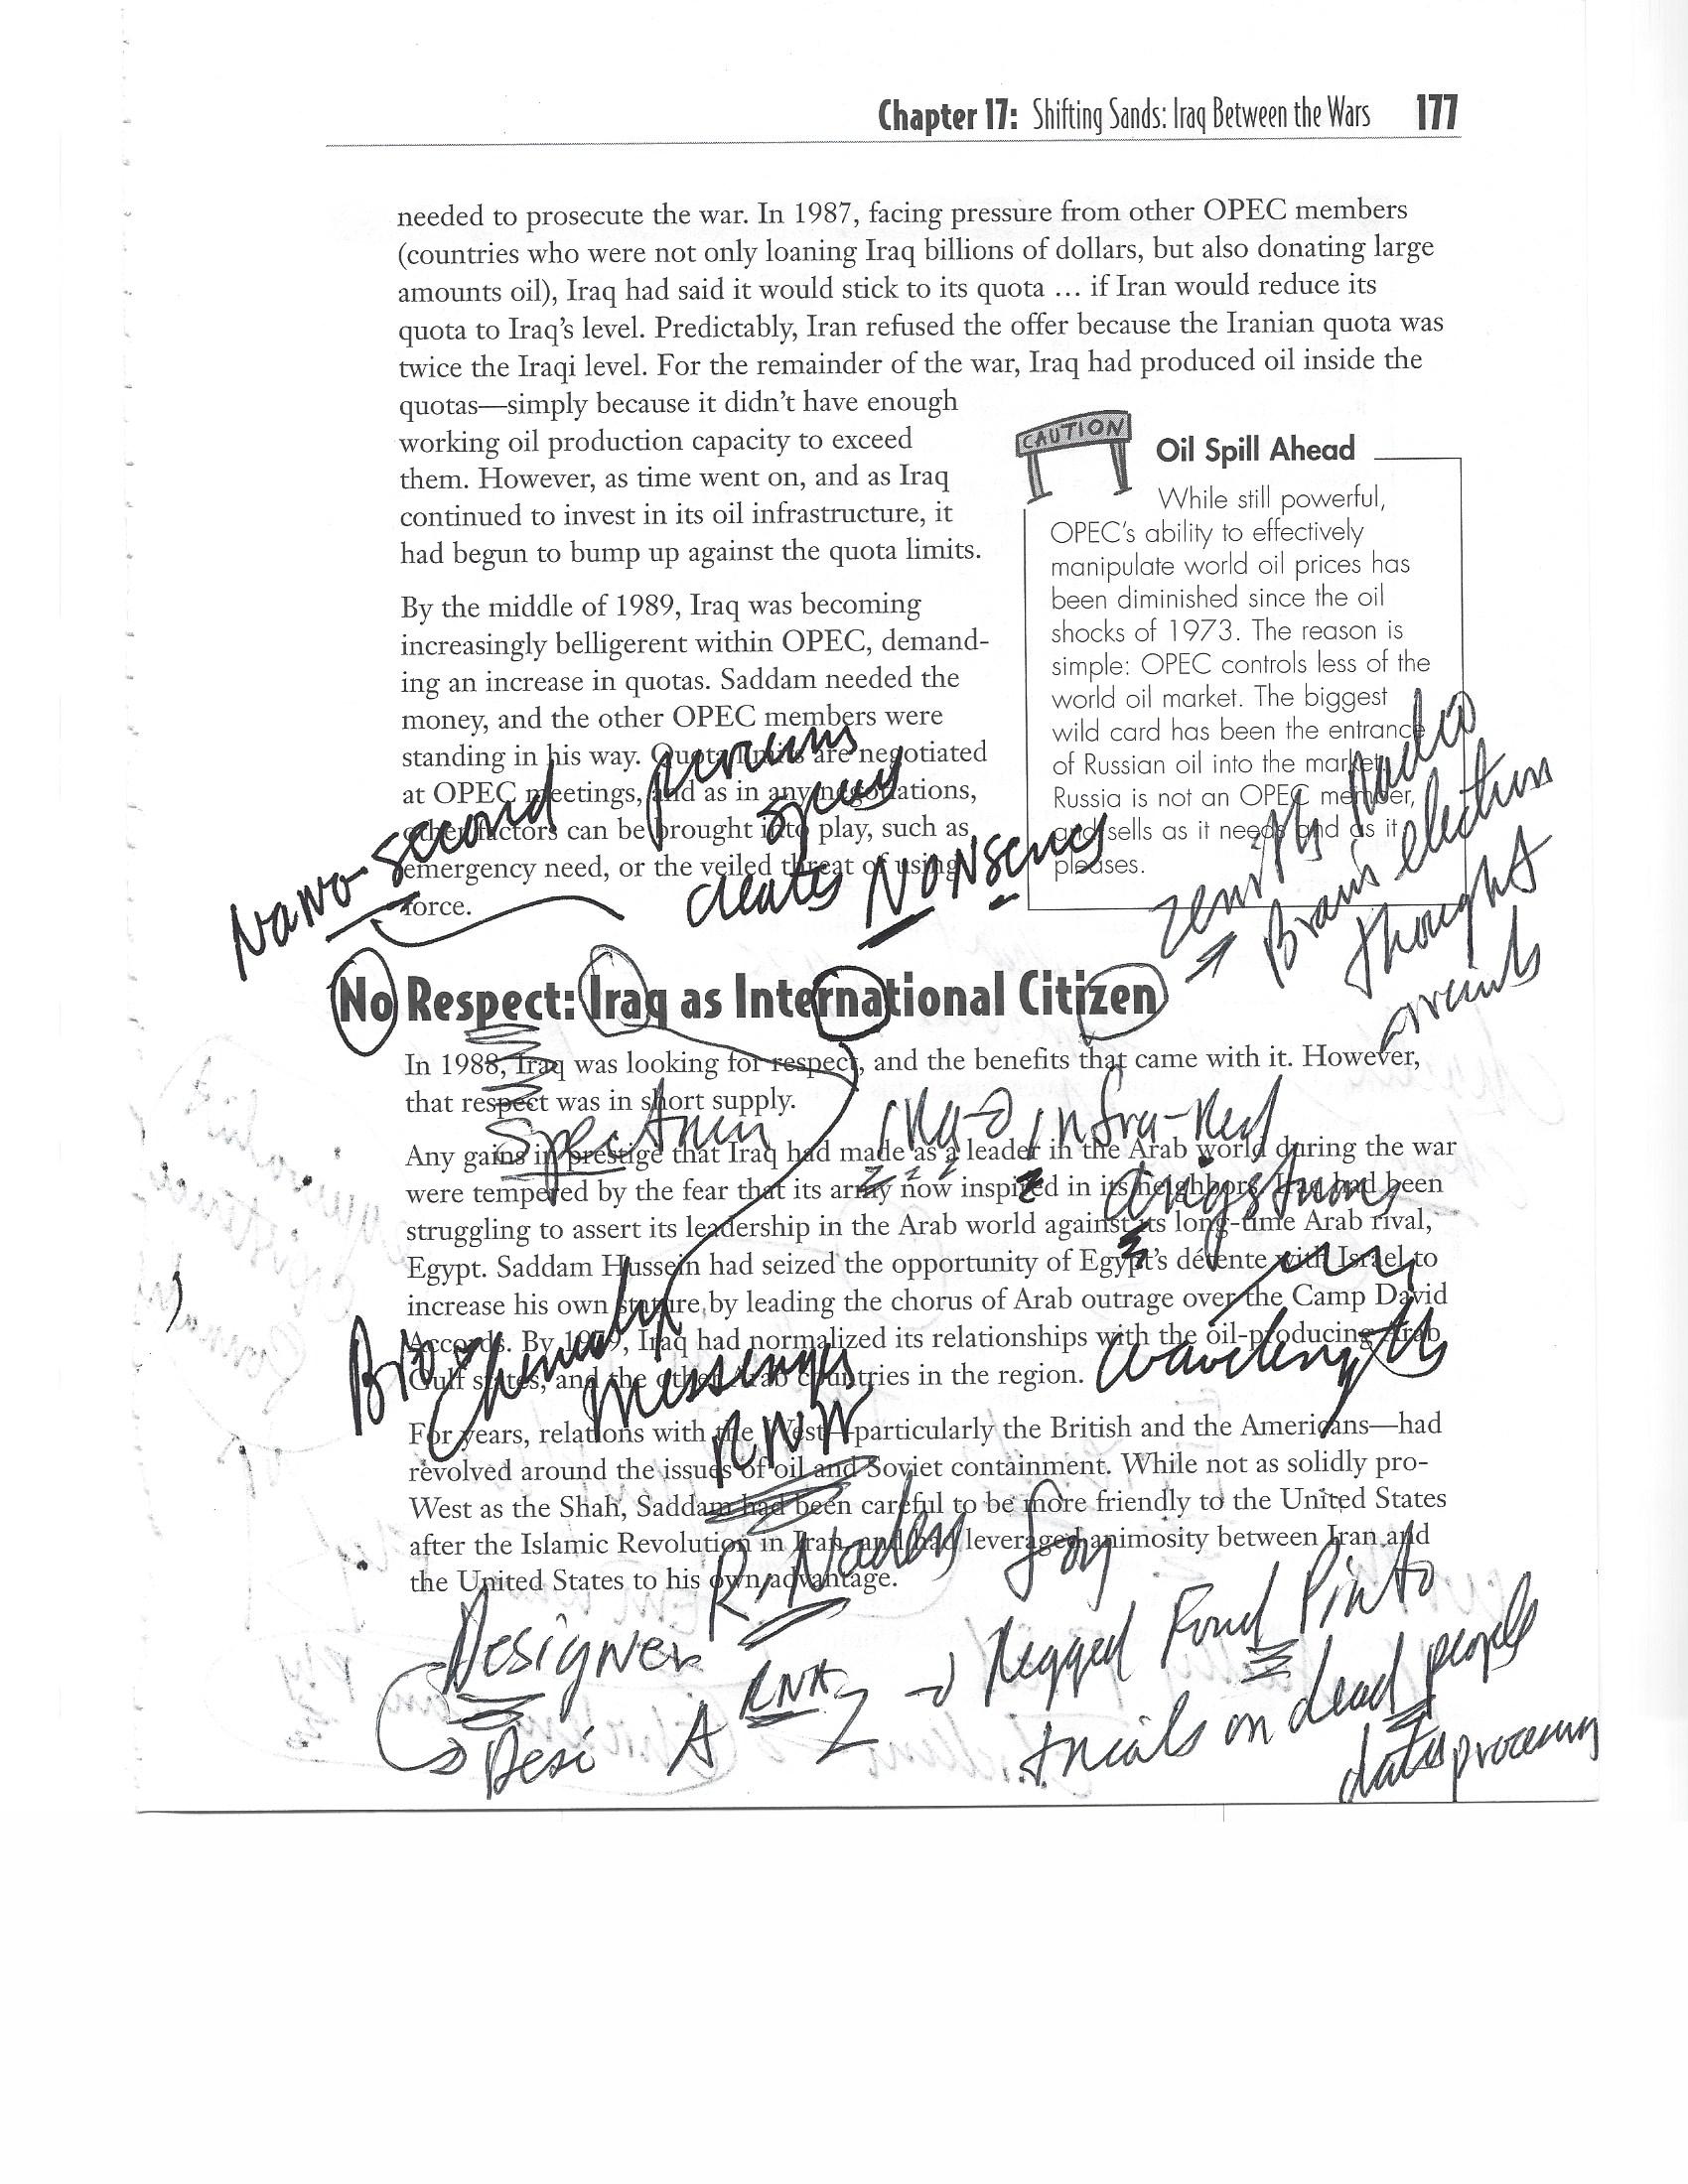 Chapter 17: Shifting Sands: Iraq Between the Wars 177
needed to prosecute the war. In 1987, facing pressure from other OPEC members
(countries who were not only loaning Iraq billions of dollars, but also donating large
amounts oil), Iraq had said it would stick to its quota … if Iran would reduce its
quota to Iraq's level. Predictably, Iran refused the offer because the Iranian quota was
twice the Iraqi level. For the remainder of the war, Iraq had produced oil inside the
quotas—simply because it didn't have enough
working oil production capacity to exceed
them. However, as time went on, and as Iraq
continued to invest in its oil infrastructure, it
had begun to bump up against the quota limits.
By the middle of 1989, Iraq was becoming
increasingly belligerent within OPEC, demand-
ing an increase in quotas. Saddam needed the
money, and the other OPEC members were
standing in his way. Quota limits are negotiated
at OPEC meetings, and as in any negotiations,
other factors can be brought into play, such as
emergency need, or the veiled threat of using
force.
CAUTION
Oil Spill Ahead
While still powerful,
OPEC's ability to effectively
manipulate world oil prices has
been diminished since the oil
shocks of 1973. The reason is
simple: OPEC controls less of the
world oil market. The biggest
wild card has been the entrance
of Russian oil into the market.
Russia is not an OPEC member,
and sells as it needs and as it
pleases.
Nano-second
spews
creates NONSense
zenith radio
Brain's election
thought
No Respect: Iraq as International Citizen
In 1988, Iraq was looking for respect, and the benefits that came with it. However,
that respect was in short supply.
Spectrum
infra-Red
Any gains in prestige that Iraq had made as a leader in the Arab world during the war
were tempered by the fear that its army now inspired in its neighbors. Iraq had been
struggling to assert its leadership in the Arab world against its long-time Arab rival,
Egypt. Saddam Hussein had seized the opportunity of Egypt's détente with Israel to
increase his own stature by leading the chorus of Arab outrage over the Camp David
Accords. By 1979, Iraq had normalized its relationships with the oil-producing Arab
Gulf states, and the other Arab countries in the region.
angstroms
wavelengths
Bio-Chemical
messenger
RNA
For years, relations with the West—particularly the British and the Americans—had
revolved around the issues of oil and Soviet containment. While not as solidly pro-
West as the Shah, Saddam had been careful to be more friendly to the United States
after the Islamic Revolution in Iran and had leveraged animosity between Iran and
the United States to his own advantage.
R. Naders for
Designer
Desi A RNA Z
Rigged Ford Pinto
trials on dead people
data processing